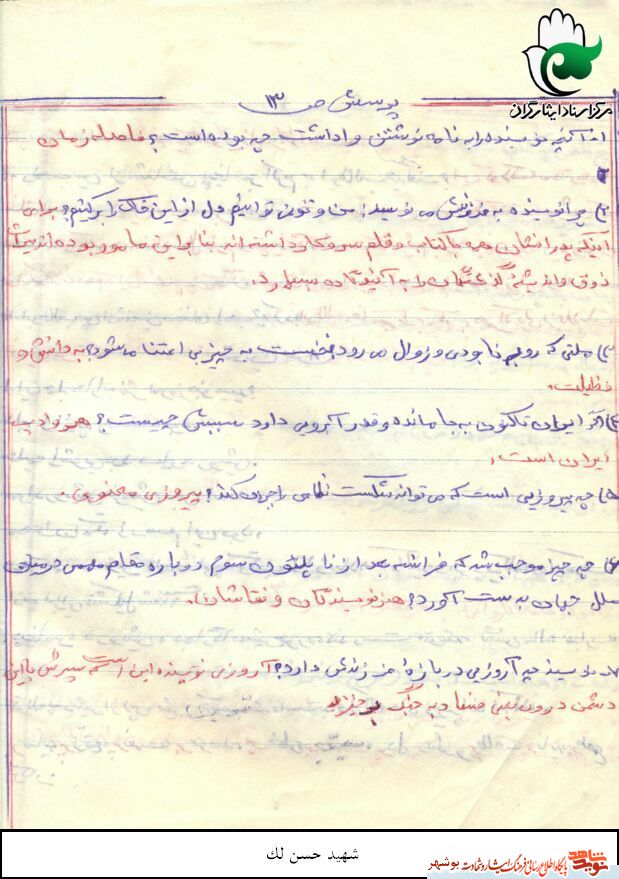 مرکز اسناد ایثارگران
پرسش ص ۱۳
۱) آنچه نویسنده را به نامه نوشتن واداشت چه بوده است؟ فاصله زمان
۲) چرا نویسنده به فرزندش می نویسد: من و تو نمی توانیم دل از این خاک برکنیم؟ برای
اینکه پدرانشان همه با کتاب و قلم سروکار داشته اند بنابراین مامور بوده اند میراث
ذوق و اندیشهٔ گذشتگان را به آیندگان بسپارد.
۳) ملتی که رو به نابودی و زوال می رود نخست به چیز بی اعتنا می شود؟ به دانش و
فظیلت.
۴) اگر ایران تاکنون به جا مانده و قدر آبرویی دارد سببش چیست؟ هنر و ادب
ایران است.
۵) چه پیروزیی است که می تواند شکست نظامی را جبران کند؟ پیروزی معنوی.
۶) چه چیز موجب شد که فرانسه بعد از ناپلئون سوم دوباره مقام مهمی در میان
ملل جهان به ست آورد؟ هنر نویسندگان و نقاشان.
نویسنده چه آرزویی دربارهٔ فرزندش دارد؟ آروزی نویسنده این است که پسرش با این
دشمن درون یعنی فساد به جنگ برخیزد
شهید حسن لك
نوید شاهد
پایگاه اطلاع رسانی فرهنگ ایثار و شهادت بوشهر